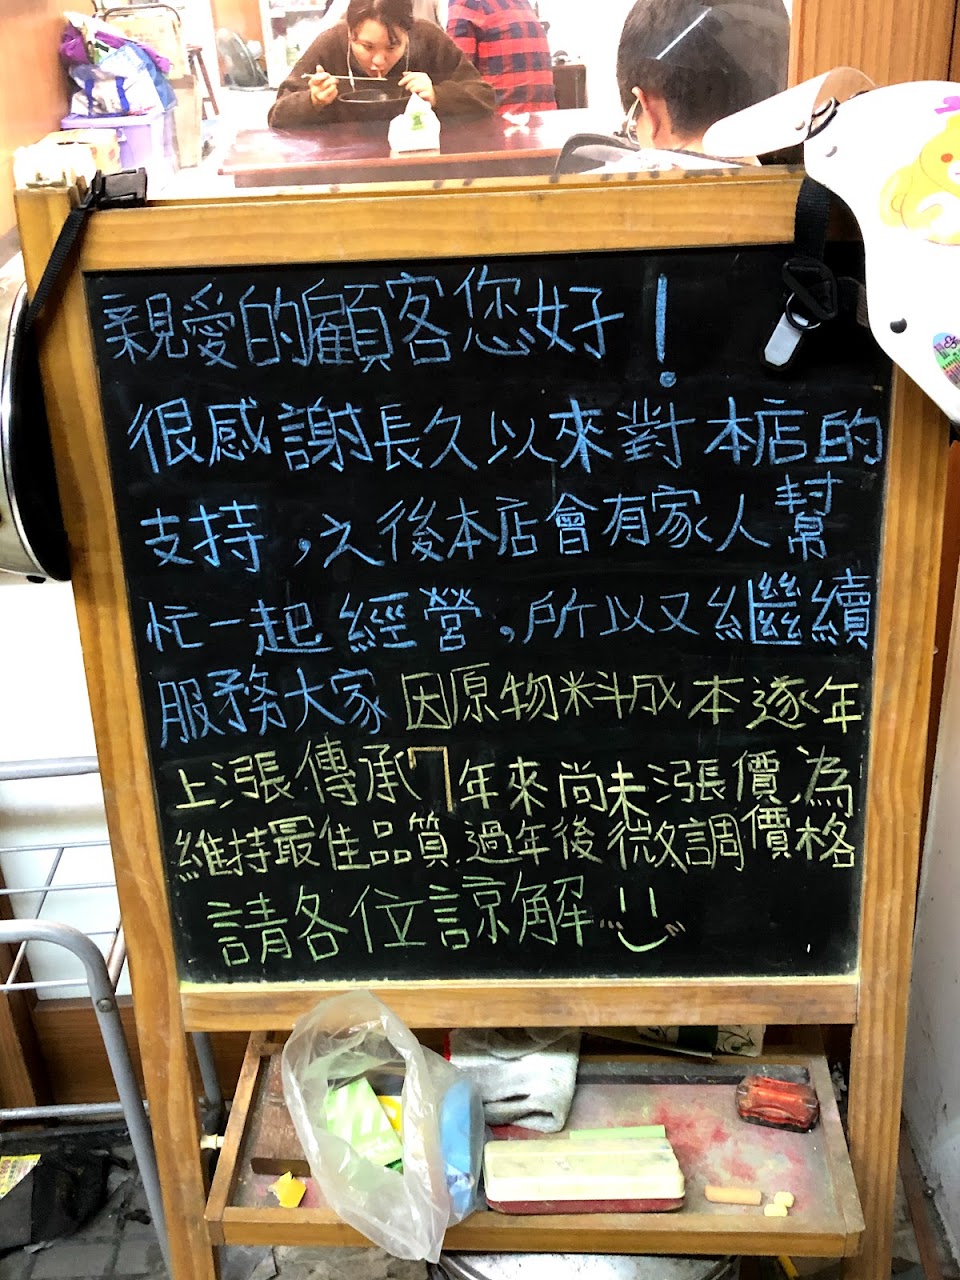 親愛的顧客您好！
很感謝長久以來對本店的
支持，之後本店會有家人幫
忙一起經營，所以又繼續
服務大家 因原物料成本逐年
上漲.傳承7年來尚未漲價.為
維持最佳品質.過年後微調價格
請各位諒解